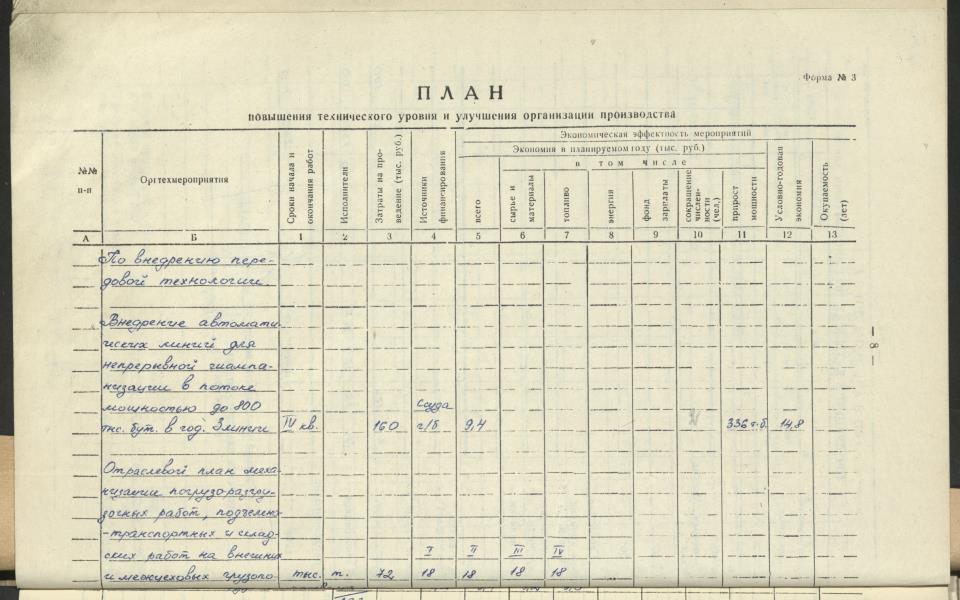 Форма № 3
ПЛАН
повышения технического уровня и улучшения организации производства
№№ п-п
Оргтехмероприятия
Сроки начала и окончания работ
Исполнители
Затраты на проведение (тыс. руб.)
Источники финансирования
Экономическая эффективность мероприятий
Экономия в планируемом году (тыс. руб.)
в том числе
всего
сырье и материалы
топливо
энергия
фонд зарплаты
сокращение численности (чел.)
прирост мощности
Условно-годовая экономия
Окупаемость (лет)
А Б 1 2 3 4 5 6 7 8 9 10 11 12 13
По внедрению пере-
довой технологии.
Внедрение автомати-
ческих линий для
непрерывной шампа-
низации в потоке
мощностью до 800 ссуда
тыс. бут. в год. 3 линии IV кв. 160 г/б 9,4 336 т.б. 14,8
Отраслевой план меха-
низации погрузо-разгру-
зочных работ, подъемно-
-транспортных и склад-
ских работ на внешних I II III IV
и межцеховых грузопо- тыс. т. 72 18 18 18 18
— 8 —